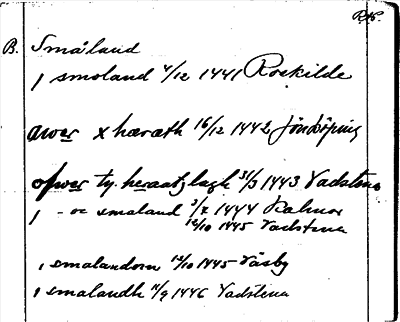 B. Småland
j smoland 4/12 1441 Roskilde
awer x hærath 16/12 1442 Jönköping
ofwer ty heraatzlagh 31/3 1443 Vadstena
j - oc smaland 3/7 1444 Kalmar
12/10 1445 Vadstena
j smalandom 12/10 1445 Väsby
j smalandh 11/9 1446 Vadstena